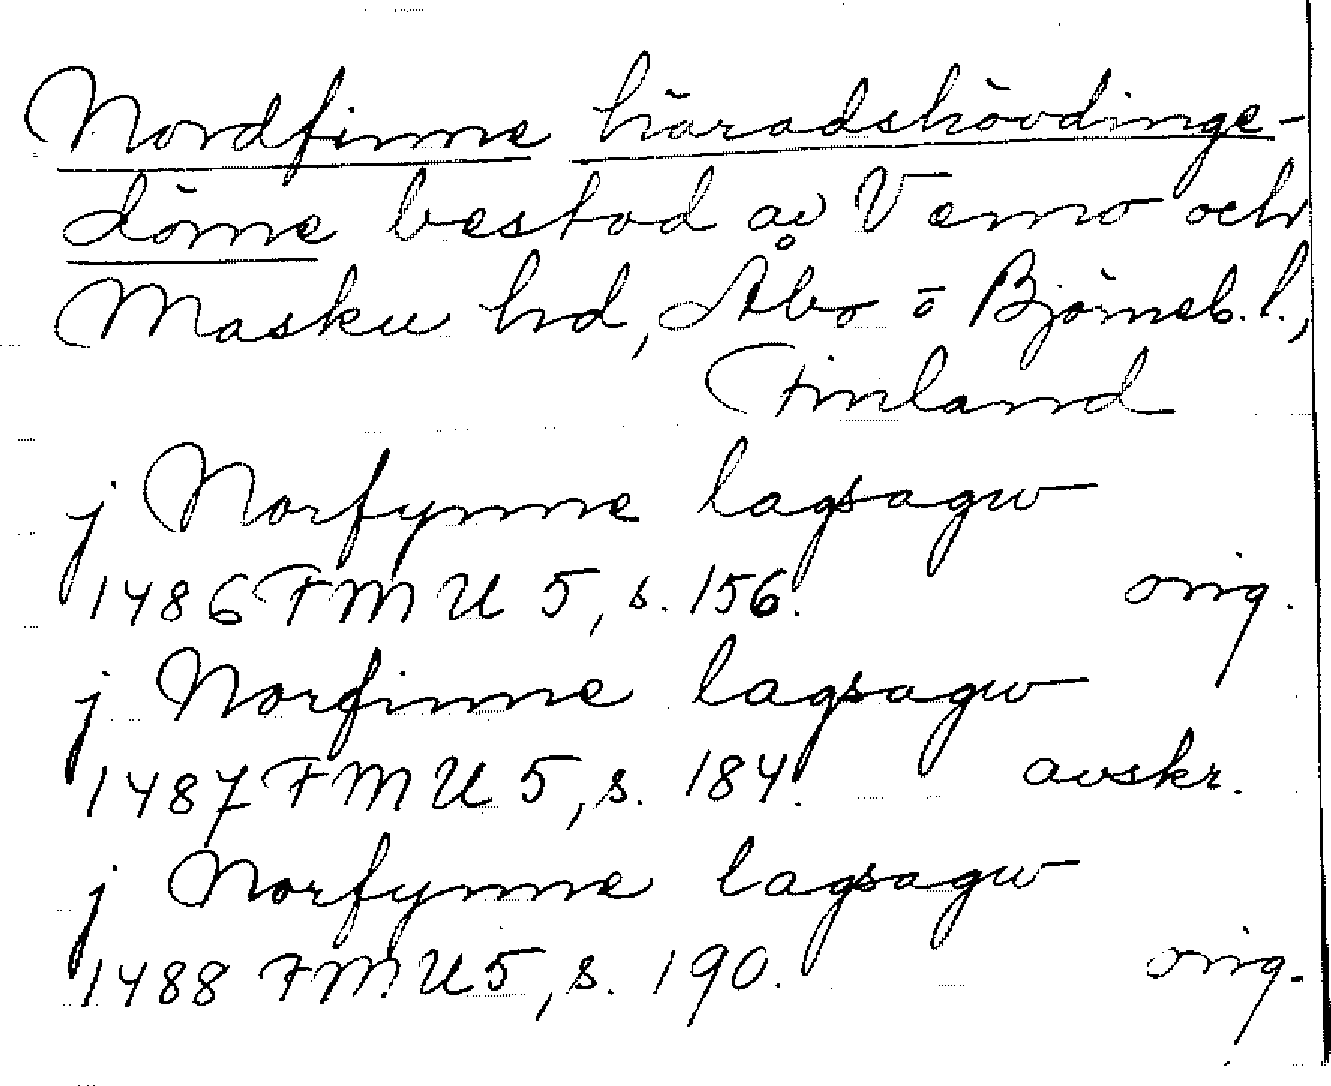 Nordfinne häradshövdinge-
döme bestod av Vemo och
Masku hd, Åbo o Björneb. l.,
Finland
j Norfynne lagsagw
1486 FMU 5, s. 156. orig.
j Norfinne lagsagw
1487 FMU 5, s. 184. avskr.
j Norfynne lagsagw
1488 FMU 5, s. 190. orig.